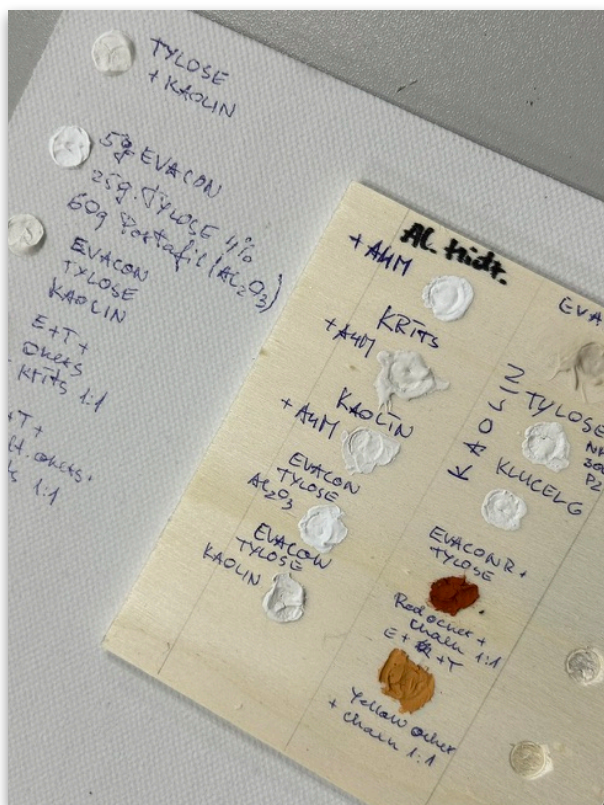 TYLOSE
+ KAOLIN
5g EVACON
25g. TYLOSE 4%
60g Portafil (Al₂O₃)
EVACON
TYLOSE
KAOLIN
E+T+
ochers
KRĪTS 1:1
+T+
ochers+
1:1
AL. Hidr.
+ AHM
KRĪTS
+ AHM
KAOLĪN
+ AHM
EVACON
TYLOSE
Al₂O₃
EVACON
TYLOSE
KAOLIN
EVA
KAOLIN
TYLOSE
KLUCELG
EVACON R +
TYLOSE
Red ocher +
chalk 1:1
E+ +T
Yellow ocher
+ chalk 1:1